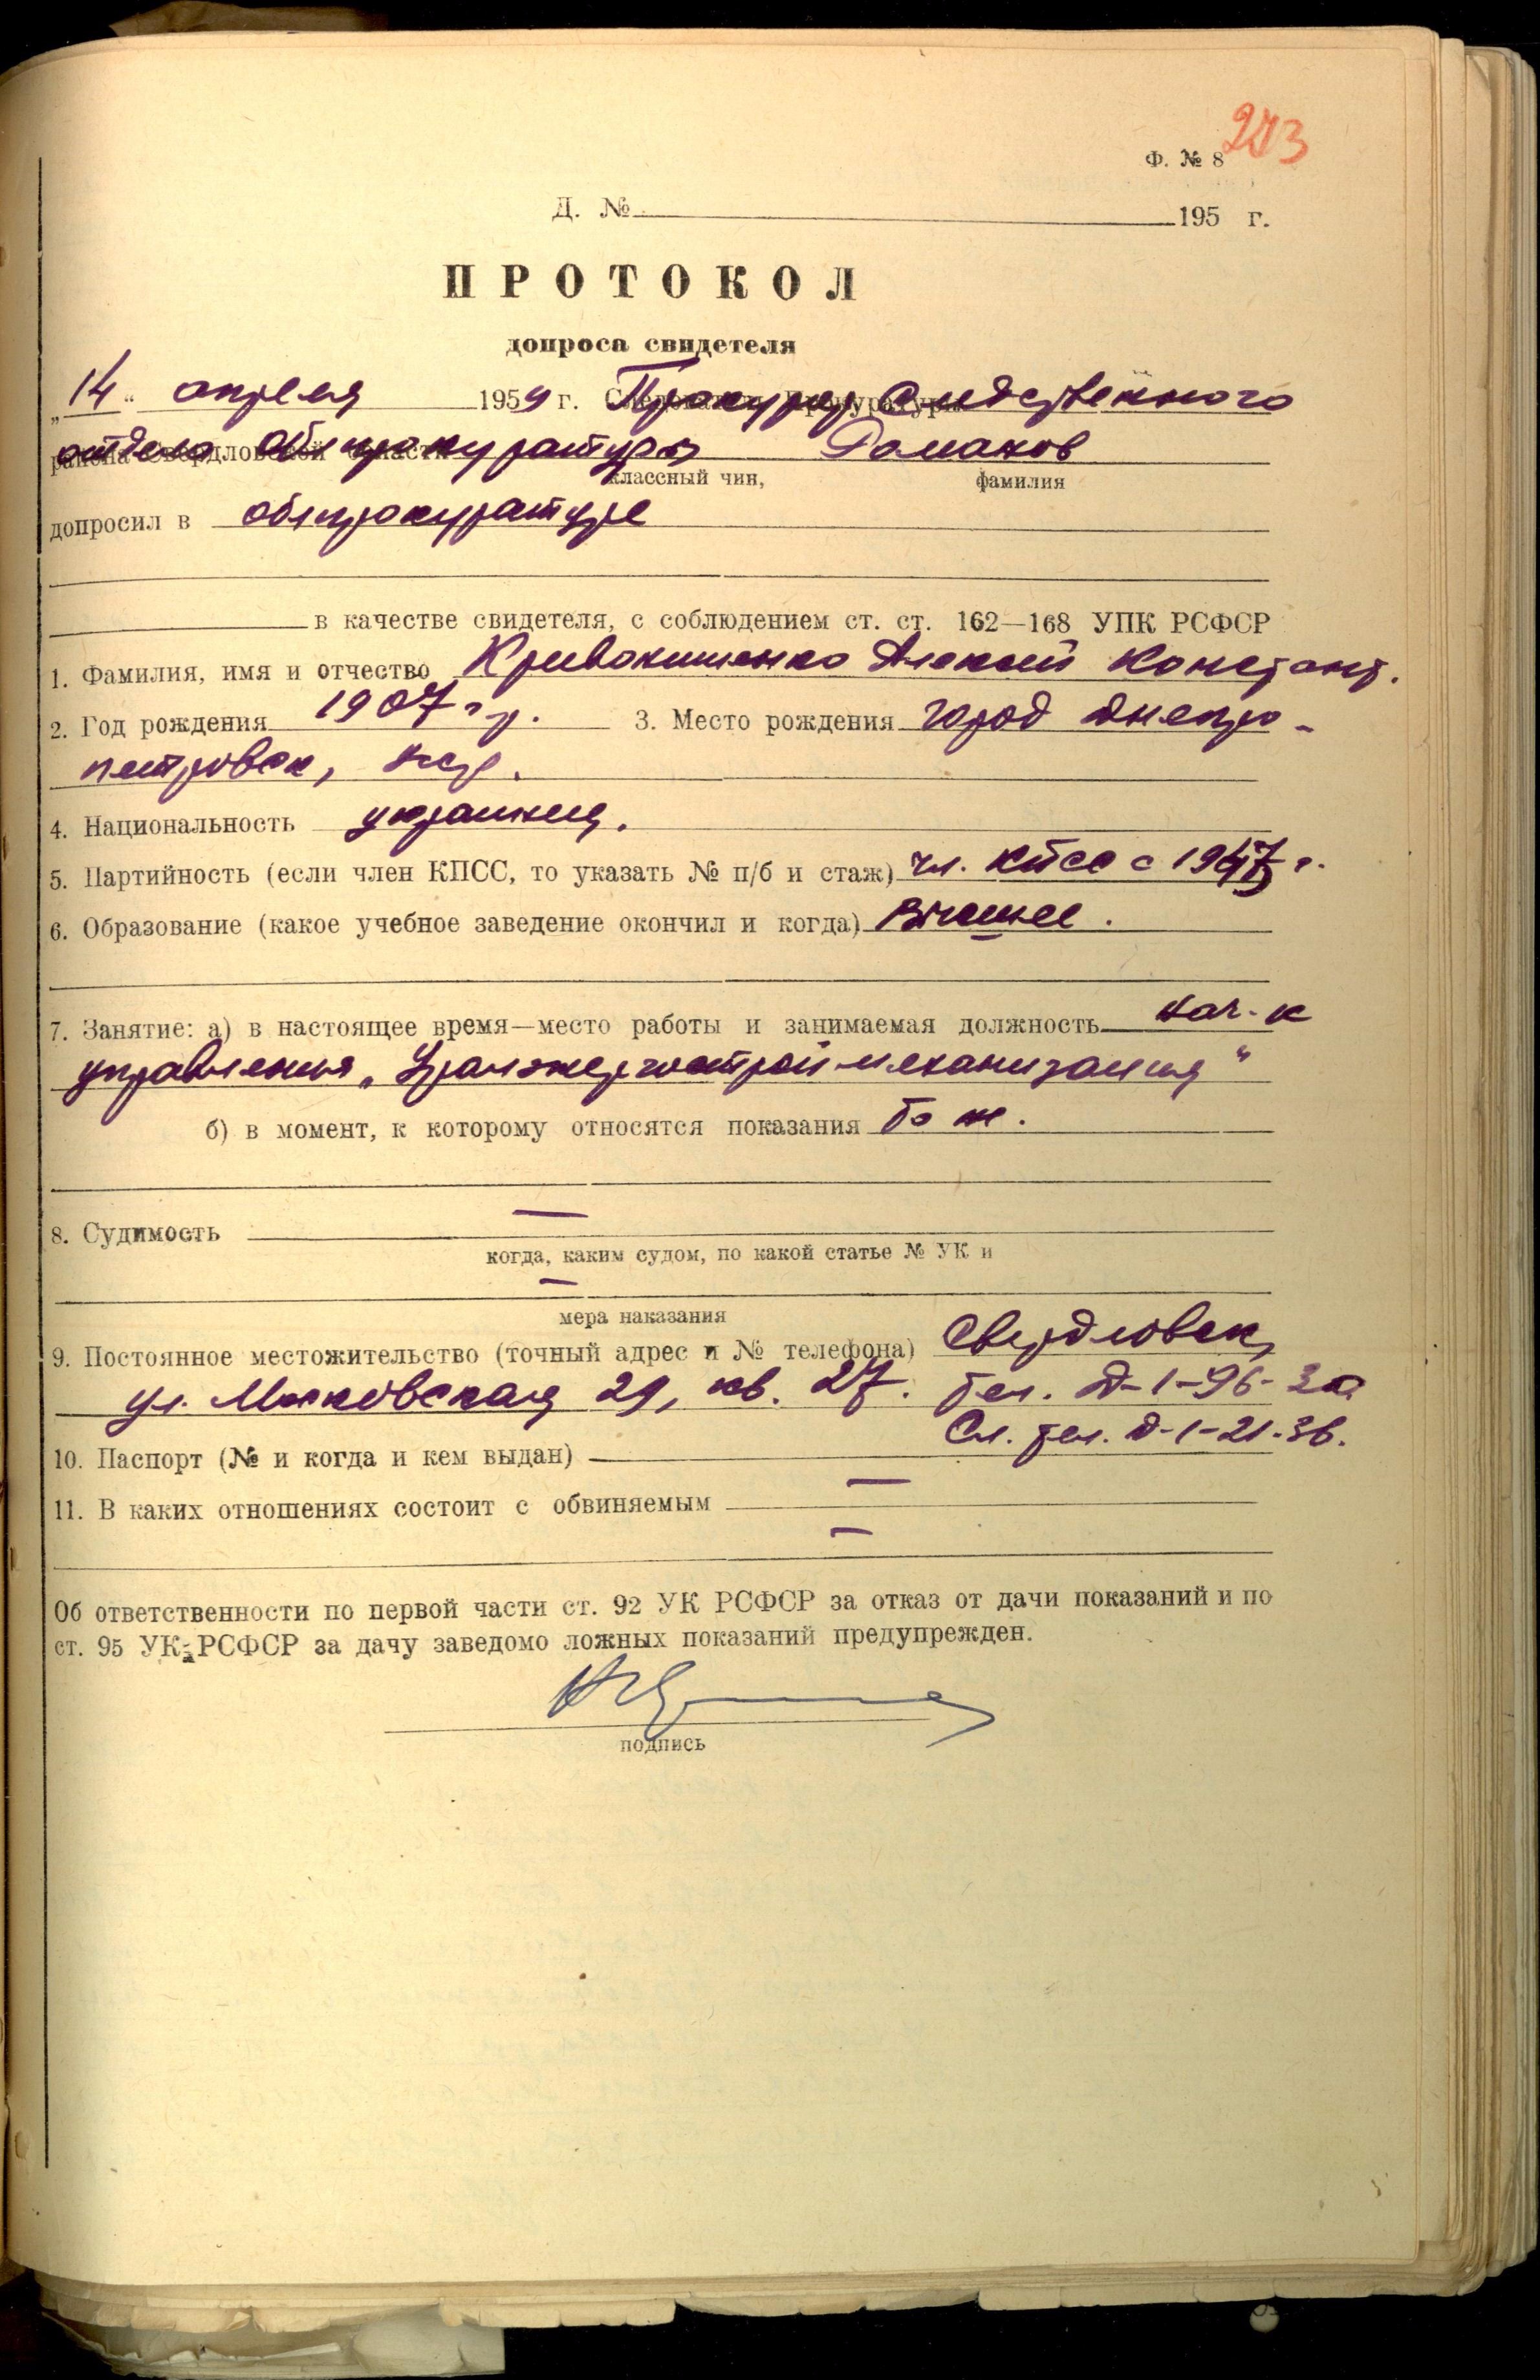 273
Ф. № 8
Д. № 195 г.
ПРОТОКОЛ
допроса свидетеля
„14“ апреля 1959 г. Прокурор Следственного
отдела Облпрокуратуры Романов
классный чин, фамилия
допросил в облпрокуратуре
в качестве свидетеля, с соблюдением ст. ст. 162—168 УПК РСФСР
1. Фамилия, имя и отчество Кривонищенко Алексей Констант.
2. Год рождения 1907 г.р. 3. Место рождения город Днепро-
петровск,
4. Национальность украинец.
5. Партийность (если член КПСС, то указать № п/б и стаж) чл. КПСС с г.
6. Образование (какое учебное заведение окончил и когда) Высшее.
7. Занятие: а) в настоящее время—место работы и занимаемая должность нач-к
управления „Уралэнергостроймеханизация“
б) в момент, к которому относятся показания то же.
8. Судимость —
когда, каким судом, по какой статье № УК и
—
мера наказания
9. Постоянное местожительство (точный адрес и № телефона) Свердловск,
ул. Московская 29, кв. 27. тел. Д-1-96-
Сл. тел. Д-1-21-36.
10. Паспорт (№ и когда и кем выдан)
—
11. В каких отношениях состоит с обвиняемым
—
Об ответственности по первой части ст. 92 УК РСФСР за отказ от дачи показаний и по
ст. 95 УК РСФСР за дачу заведомо ложных показаний предупрежден.
подпись